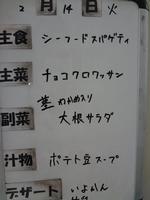 2月14日火
主食 シーフードスパゲティ
主菜 チョコクロワッサン
茎わかめ入り
副菜 大根サラダ
汁物 ポテト豆スープ
デザート いよかん